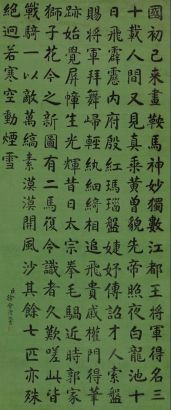 國初已來畫鞍馬神妙獨數江都王將軍得名三
十載人間又見真乘黃曾貌先帝照夜白龍池十
日飛霹靂內府殷紅瑪瑙盤婕妤傳詔才人索盤
賜將軍拜舞歸輕紈細綺相追飛貴戚權門得筆
跡始覺屏幛生光輝昔日太宗拳毛騧近時郭家
獅子花今之新圖有二馬復令識者久歎嗟此皆
戰騎一以敵萬縞素漠漠開風沙其餘七匹亦殊
絕迥若寒空動煙雪